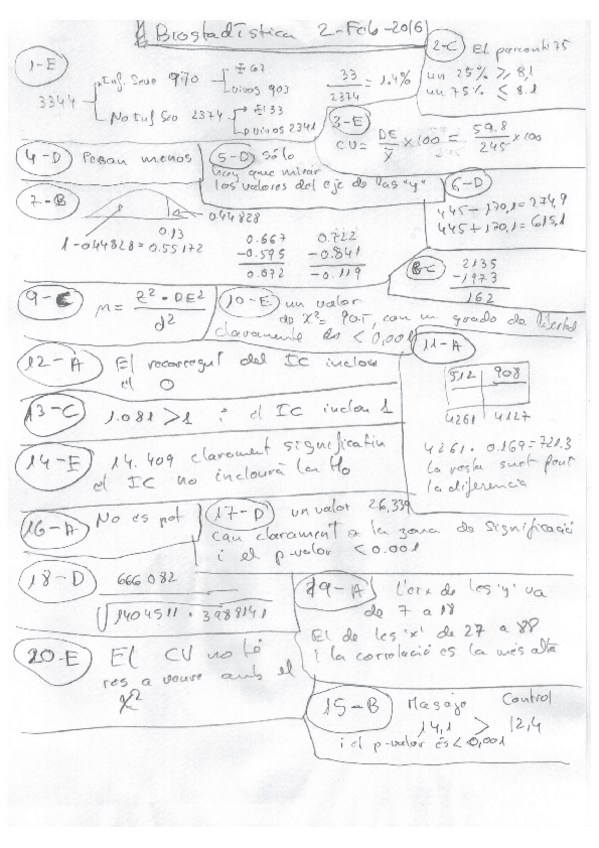 Bioestadística 2-Feb-2016
1-E
3344
Inf. Seve 970
67
Vivos 903
No Inf Sev 2374
133
Vivos 2341
33/2374 = 1.4%
2-C El percentil 75
un 25% ≥ 8,1
un 75% ≤ 8.1
3-E
CV = DE/x̄ × 100 = 59.8/245 × 100
4-D Pesan menos
5-D Sólo
hay que mirar
los valores del eje de las "y"
6-D
445 - 170,1 = 274,9
445 + 170,1 = 615,1
7-B
0.44828
0.13
1-0.44828 = 0.55172
0.667 0.722
-0.595 -0.841
0.072 -0.119
8-C 2135
-1973
162
9-C n = Z² · DE² / d²
10-E un valor
de X² = 90.5, con un grado de libertad
claramente es < 0,001
11-A
512 908
4261 4127
4261 · 0.169 = 721.3
la resta surt fent
la diferencia
12-A El recorregut del IC inclou
el 0
13-C 1.081 > 1 i el IC inclou 1
14-E 14.409 clarament significatiu
el IC no inclourà la H₀
16-A No es pot
17-D un valor 26,339
cau clarament a la zona de significació
i el p-valor < 0.001
18-D 666 082
√1404511 · 3988141
19-A L'eix de les 'y' va
de 7 a 18
El de les 'x' de 27 a 88
i la correlació es la més alta
20-E El CV no té
res a veure amb el
X²
15-B Masaje Control
14,1 > 12,4
i el p-valor és < 0,001